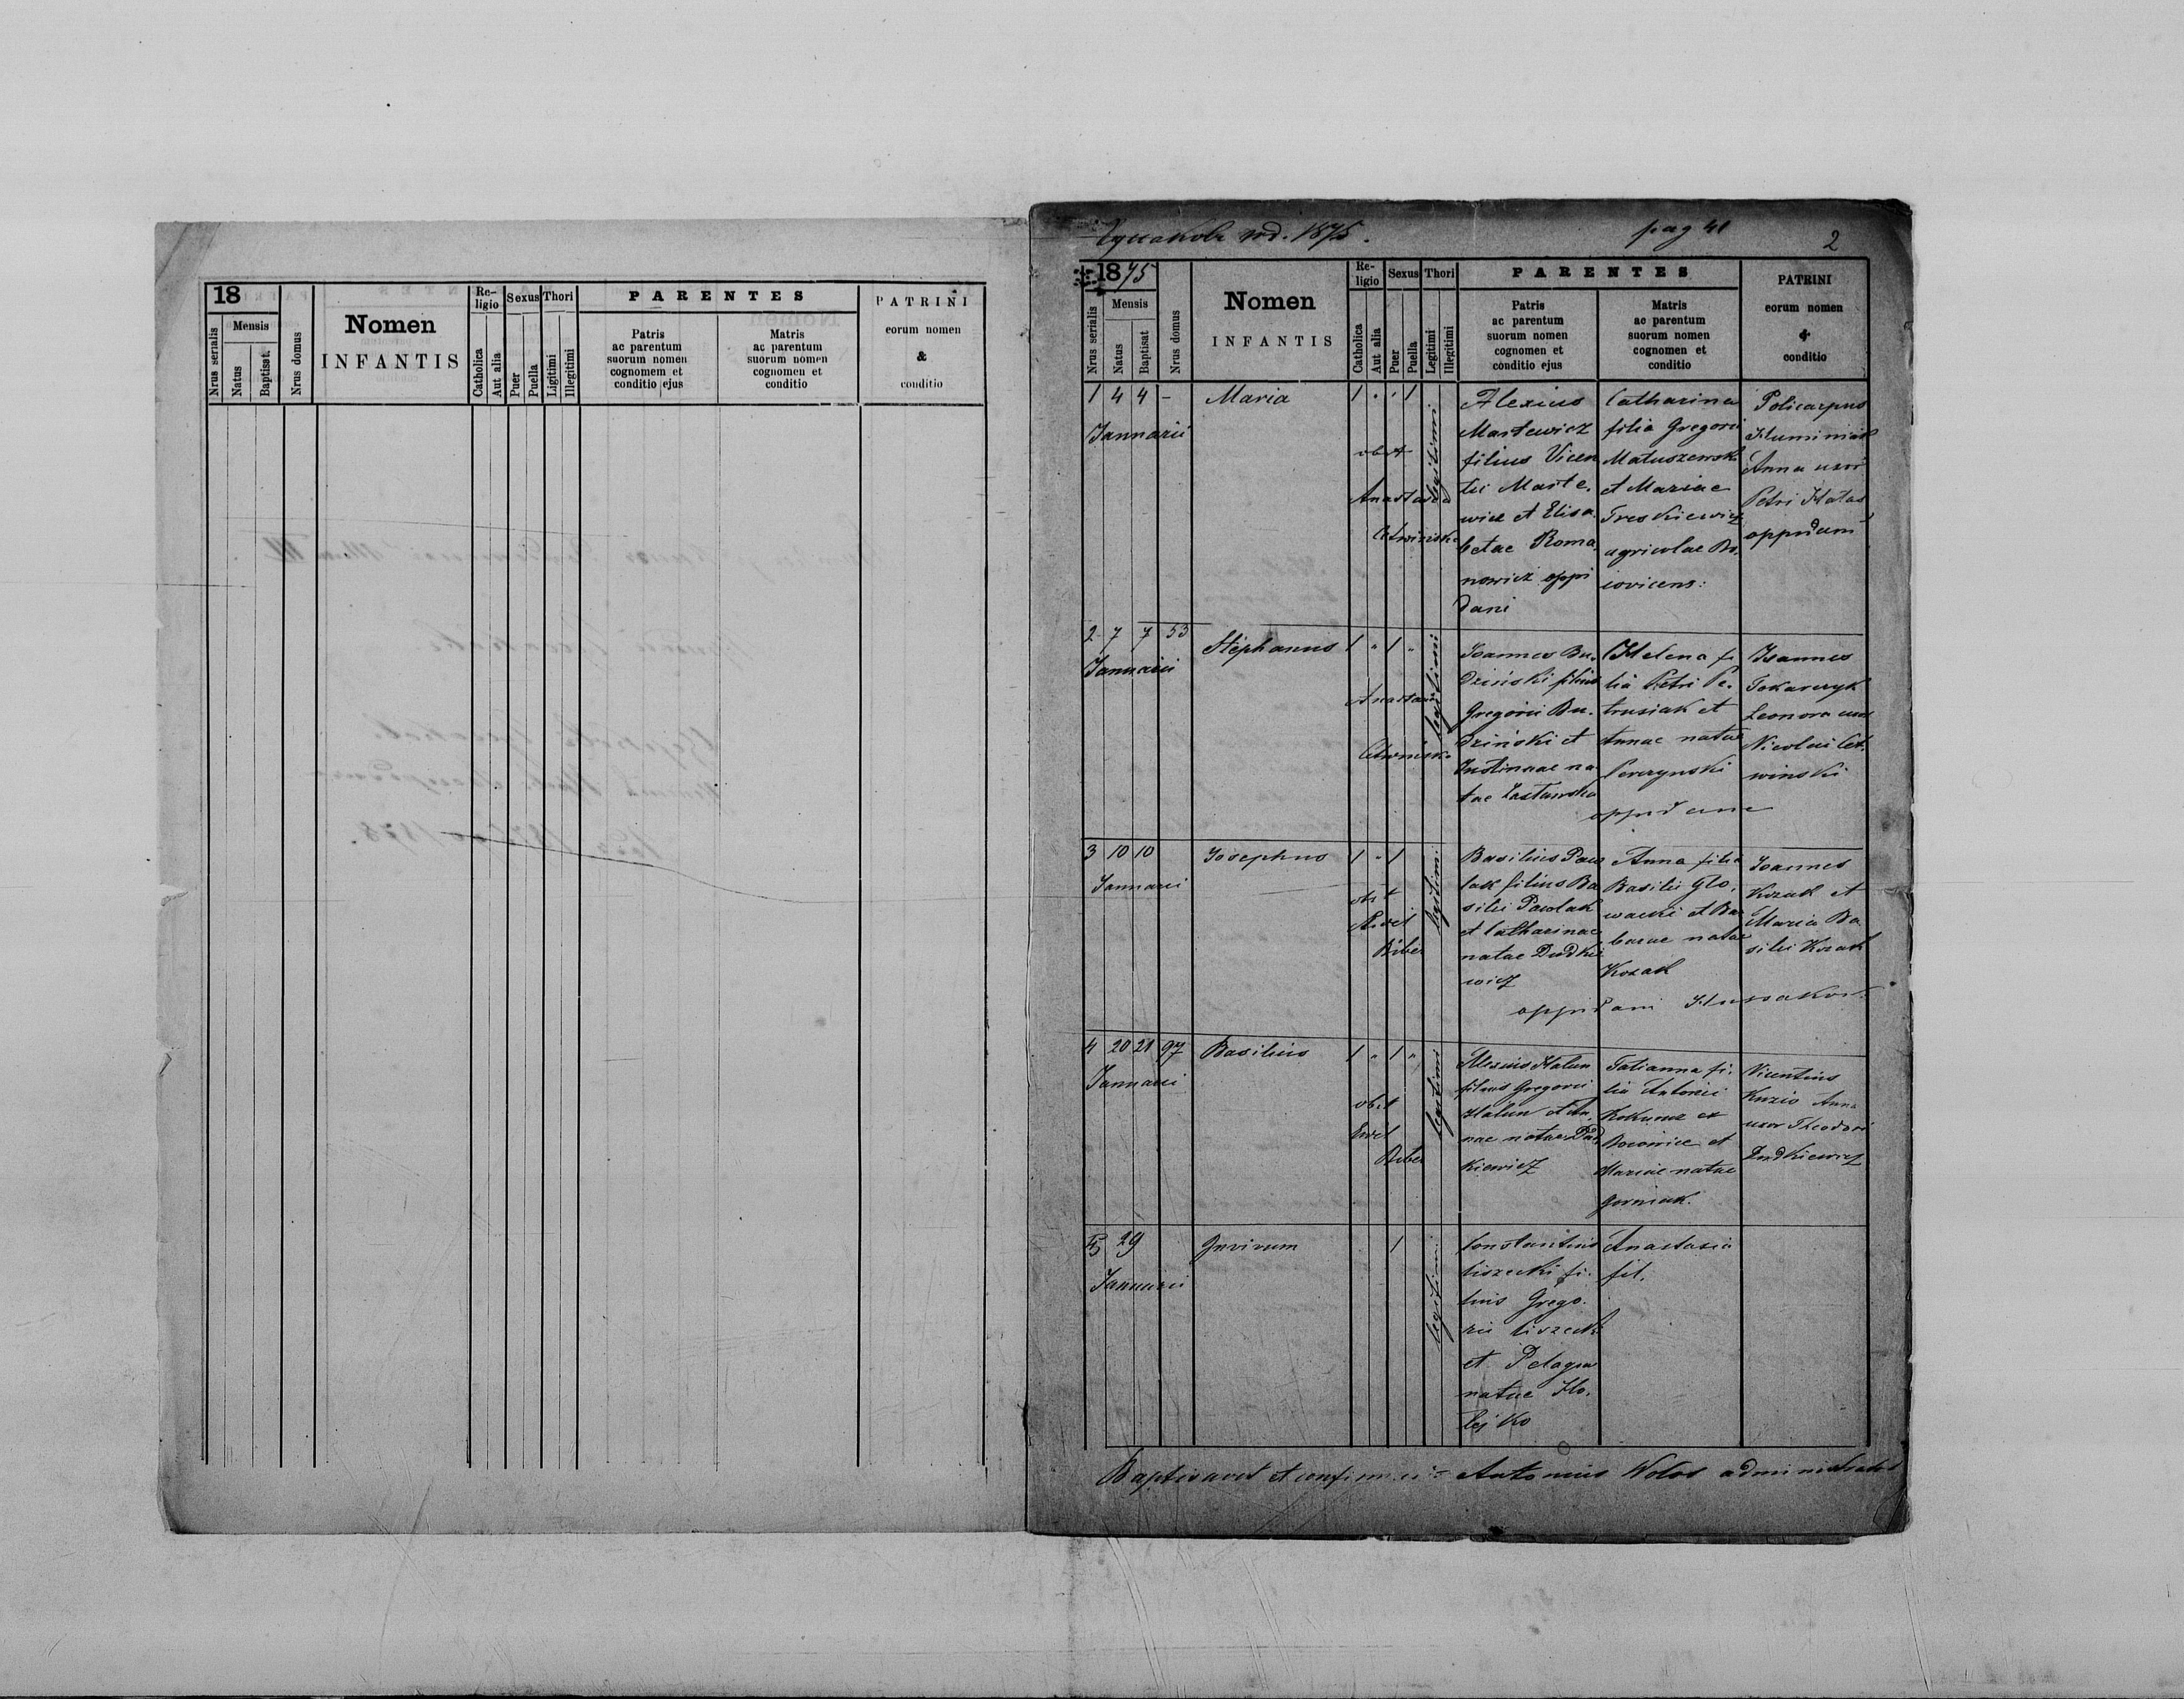 18
Nrus serialis
Mensis
Natus
Baptisat.
Nrus domus
Nomen
INFANTIS
Re-
ligio
Catholica
Aut alia
Sexus
Puer
Puella
Thori
Ligitimi
Illegitimi
PARENTES
Patris
ac parentum
suorum nomen
cognomem et
conditio ejus
Matris
ac parentum
suorum nomen
cognomen et
conditio
PATRINI
eorum nomen
&
conditio
1875.
pag 41
2
1875
Nrus serialis
Mensis
Natus
Baptisat
Nrus domus
Nomen
INFANTIS
Re-
ligio
Catholica
Aut alia
Sexus
Puer
Puella
Thori
Legitimi
Illegitimi
PARENTES
Patris
ac parentum
suorum nomen
cognomen et
conditio ejus
Matris
ac parentum
suorum nomen
cognomen et
conditio
PATRINI
eorum nomen
&
conditio
1 4 4 -
Januarii
Maria
1 1
obst
Anastasia
legitimi
Alexius
Martewicz
filius Vicen
tii Marte.
wicz et Elisa.
betae Roma
nowicz oppi
dani
Catharina
filia Gregorii
Matuszewsk
et Mariae
agricolae Bo.
iovicens:
Policarpus
Anna uxor
Petri
oppidani
2 7 7 53
Januarii
Stephanus
1 " 1 "
legitimi
Ioannes Bu.
dziński filius
Gregorii Bu.
dziński et
Justinae na
tae
Helena fi
lia Petri Pe.
trusiak et
Annae natae
oppidani
Ioannes
Tokarczyk
Leonora uxor
Nicolai Cet.
winski
3 10 10
Januarii
Josephus
1 " 1
obst
legitimi
Basilius Paw
lak filius Ba
silii Pawlak
et Catharinae
natae Dudkie
wicz
Anna filia
Basilii Glo.
wacki et Bar
barae natae
Kozak
oppidani Hussakov.
Ioannes
Kozak et
Maria Ba
silii Kozak
4 20 21 97
Januarii
Basilius
1 " 1 "
obst
legitimi
Alexius Halun
filius Gregorii
Halun et An.
nae natae Dud
kiewicz
Tatianna fi.
lia Antonii
et
Mariae natae
Gorniak.
Vicentius
Kuzio Anna
uxor Theodori
Dudkiewicz
5 29
Januarii
1
legitimi
Constantinus
Liszecki fi.
lius Grego.
rii Liszecki
et Pelagiae
natae Ho.
lejko
Anastasia
fil.
Baptisavit et confirmavit Antonius Wolos administrator